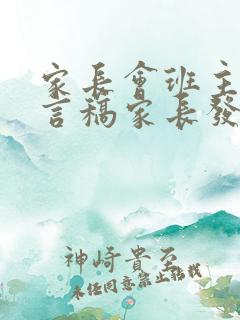 家長會班主
言稿家長發
神崎貴至
未任同意禁止轉載